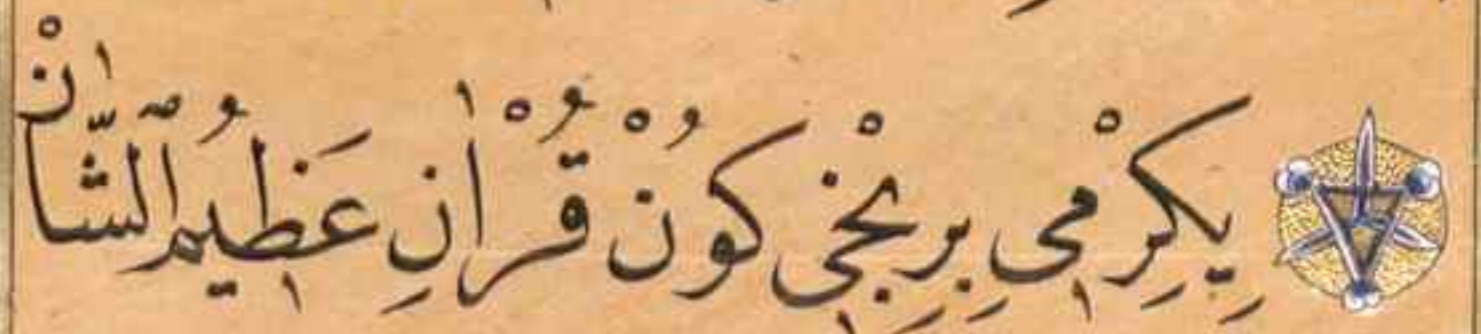 يِكِرْمٖى بِرِنْجٖى كوُنْ قُرْاٰنِ عَظٖيمُ ٱلشَّاٰنْ